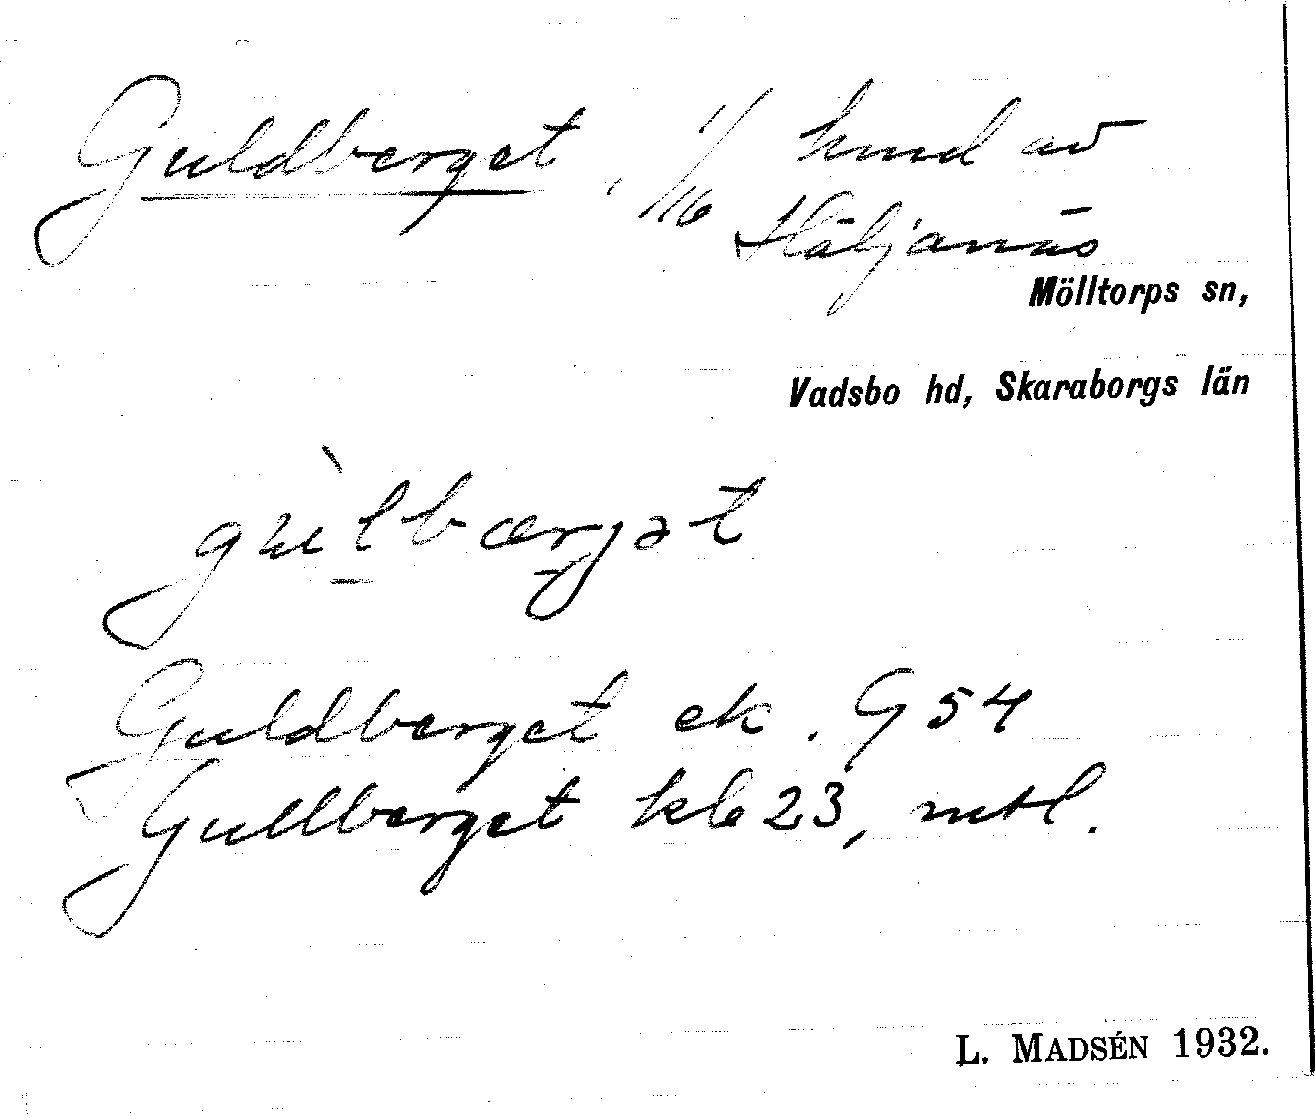 Guldberget, 1/16 hmd av
Häljanäs
Mölltorps sn,
Vadsbo hd, Skaraborgs län
Guldberget ek. G 54
Gullberget kb 23, mtl.
L. MADSÉN 1932.